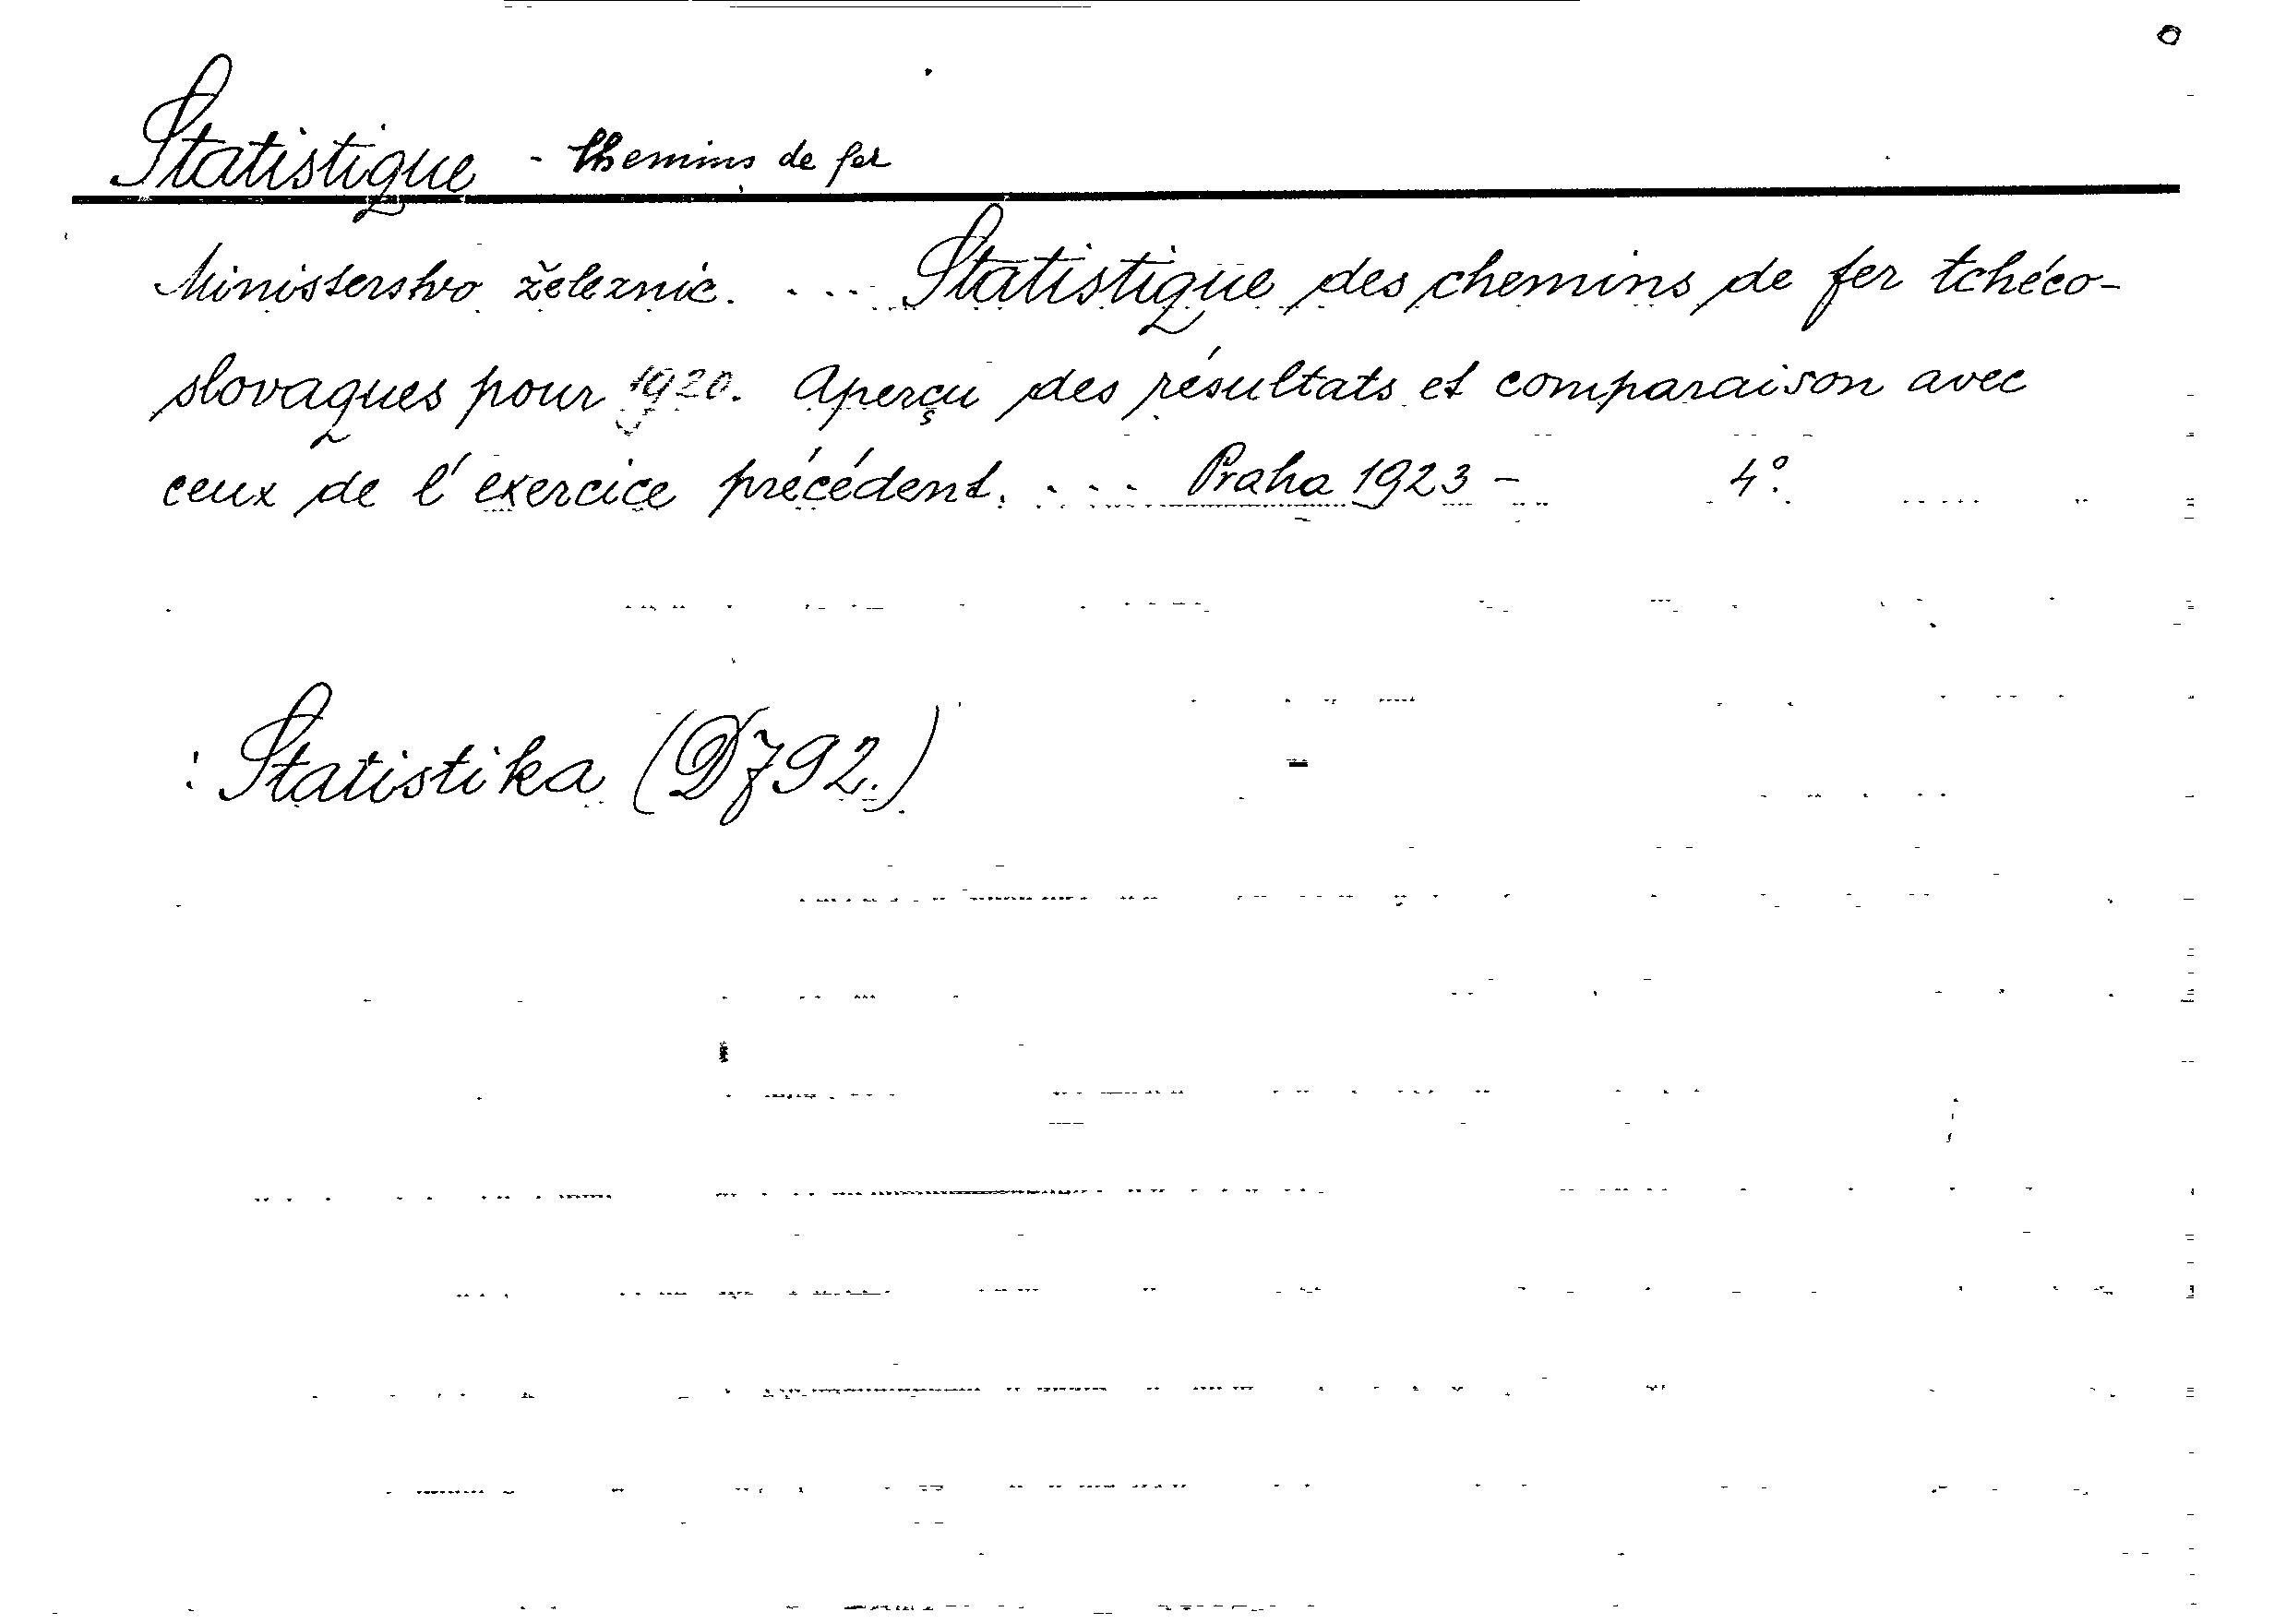 Statistique - Chemins de fer
Ministerstvo železnic. .... Statistique des chemins de fer tchéco-
slovaques pour 1920. Aperçu des résultats et comparaison avec
ceux de l'exercice précédent. ... Praha 1923 - 4°.
: Statistika (Df92.)